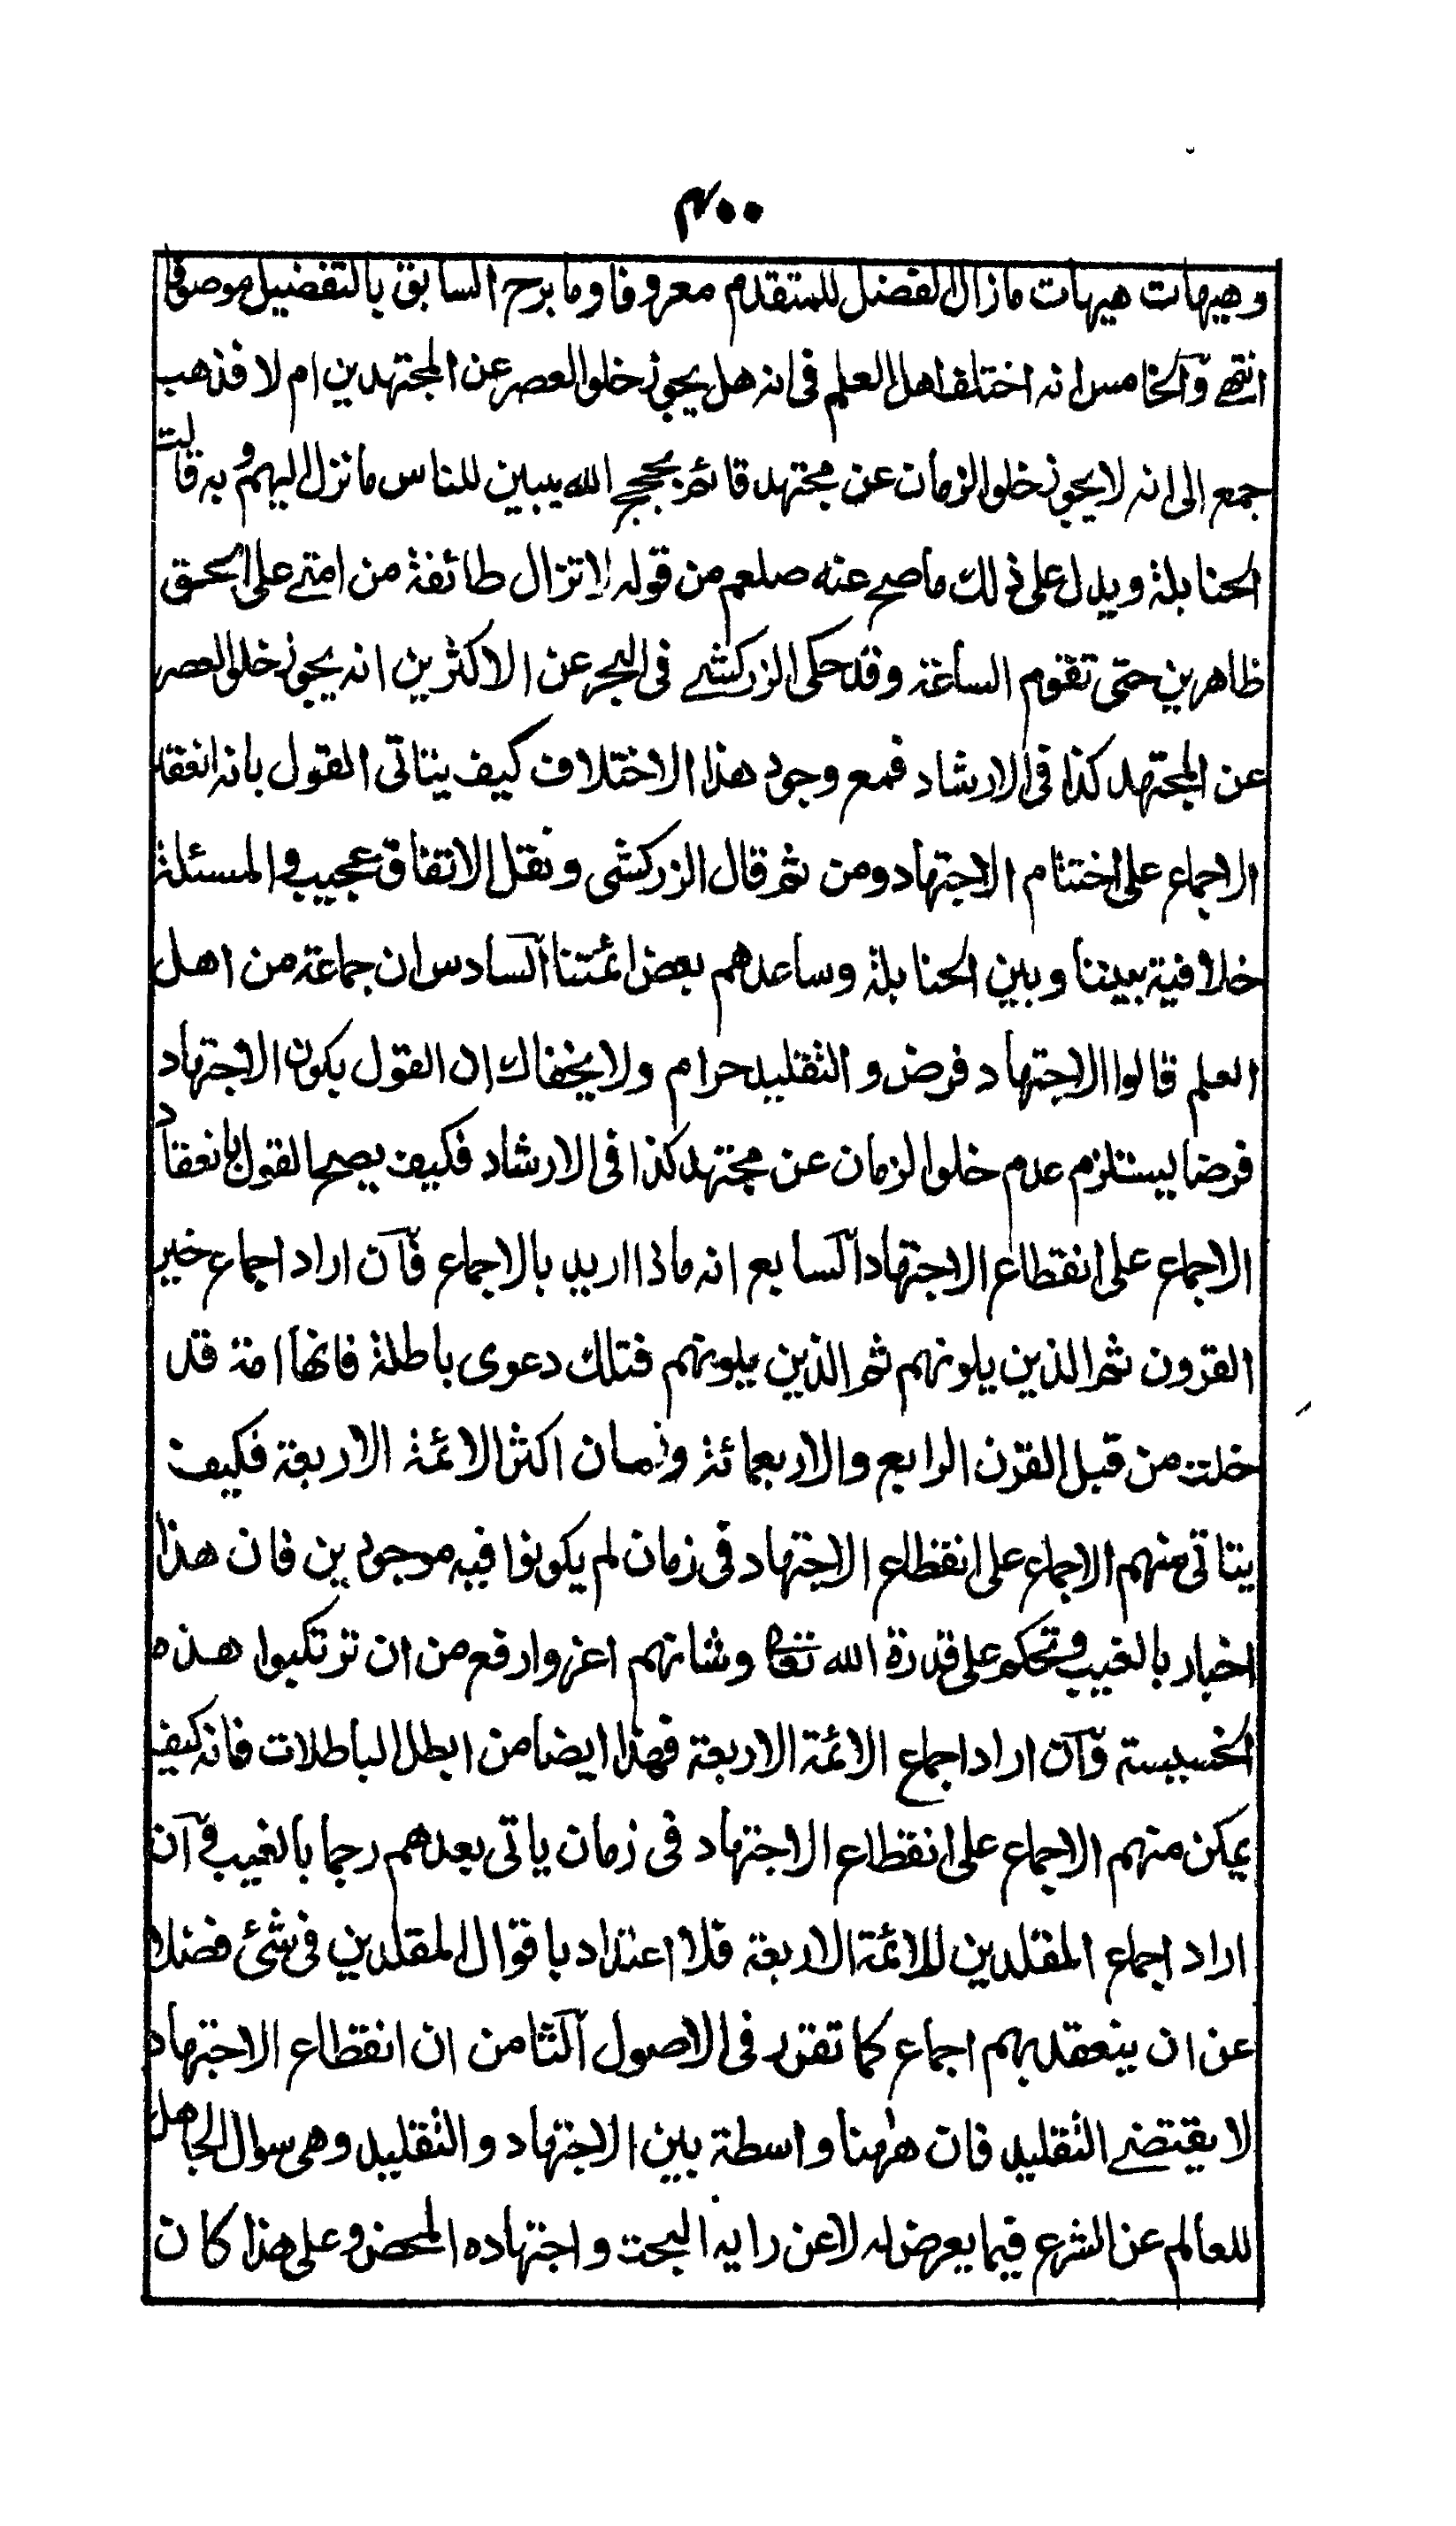 ۴۰۰
وهيهات هيهات ما زال الفضل للمتقدم معروفا وما برح السابق بالتفضيل موصوفا
انتهى والخامس انه اختلف اهل العلم فى انه هل يجوز خلو العصر عن المجتهدين ام لا فذهب
جمع الى انه لا يجوز خلو الزمان عن مجتهد قائم بحجج الله يبين للناس ما نزل اليهم وبه قالت
الحنابلة ويدل على ذلك ما صح عنه صلعم من قوله لا تزال طائفة من امتى على الحق
ظاهرين حتى تقوم الساعة وقد حكى الزركشى فى البحر عن الاكثرين انه يجوز خلو العصر
عن المجتهد كذا فى الارشاد فمع وجود هذا الاختلاف كيف يتاتى القول بانه انعقد
الاجماع على اختتام الاجتهاد ومن ثم قال الزركشى ونقل الاتفاق عجيب والمسئلة
خلافية بيننا وبين الحنابلة وساعدهم بعض ائمتنا السادس ان جماعة من اهل
العلم قالوا الاجتهاد فرض و التقليد حرام ولا يخفاك ان القول بكون الاجتهاد
فرضا يستلزم عدم خلو الزمان عن مجتهد كذا فى الارشاد فكيف يصح القول بانعقاد
الاجماع على انقطاع الاجتهاد السابع انه ماذا اريد بالاجماع فان اراد اجماع خير
القرون ثم الذين يلونهم ثم الذين يلونهم فتلك دعوى باطلة فانها امة قد
خلت من قبل القرن الرابع والاربعمائة وزمان اكثر الائمة الاربعة فكيف
يتاتى منهم الاجماع على انقطاع الاجتهاد فى زمان لم يكونوا فيه موجودين فان هذا
اخبار بالغيب وتحكم على قدرة الله تعالى وشانهم اعز وارفع من ان ترتكبوا هذه
الخسيسة وان اراد اجماع الائمة الاربعة فهذا ايضا من ابطل الباطلات فانه كيف
يمكن منهم الاجماع على انقطاع الاجتهاد فى زمان ياتى بعدهم رجما بالغيب وان
اراد اجماع المقلدين للائمة الاربعة فلا اعتداد باقوال المقلدين فى شئ فضلا
عن ان ينعقد بهم اجماع كما تقرر فى الاصول الثامن ان انقطاع الاجتهاد
لا يقتضى التقليد فان ههنا واسطة بين الاجتهاد والتقليد وهى سوال الجاهل
للعالم عن الشرع فيما يعرض له لا عن رايه البحت واجتهاده المحض وعلى هذا كان